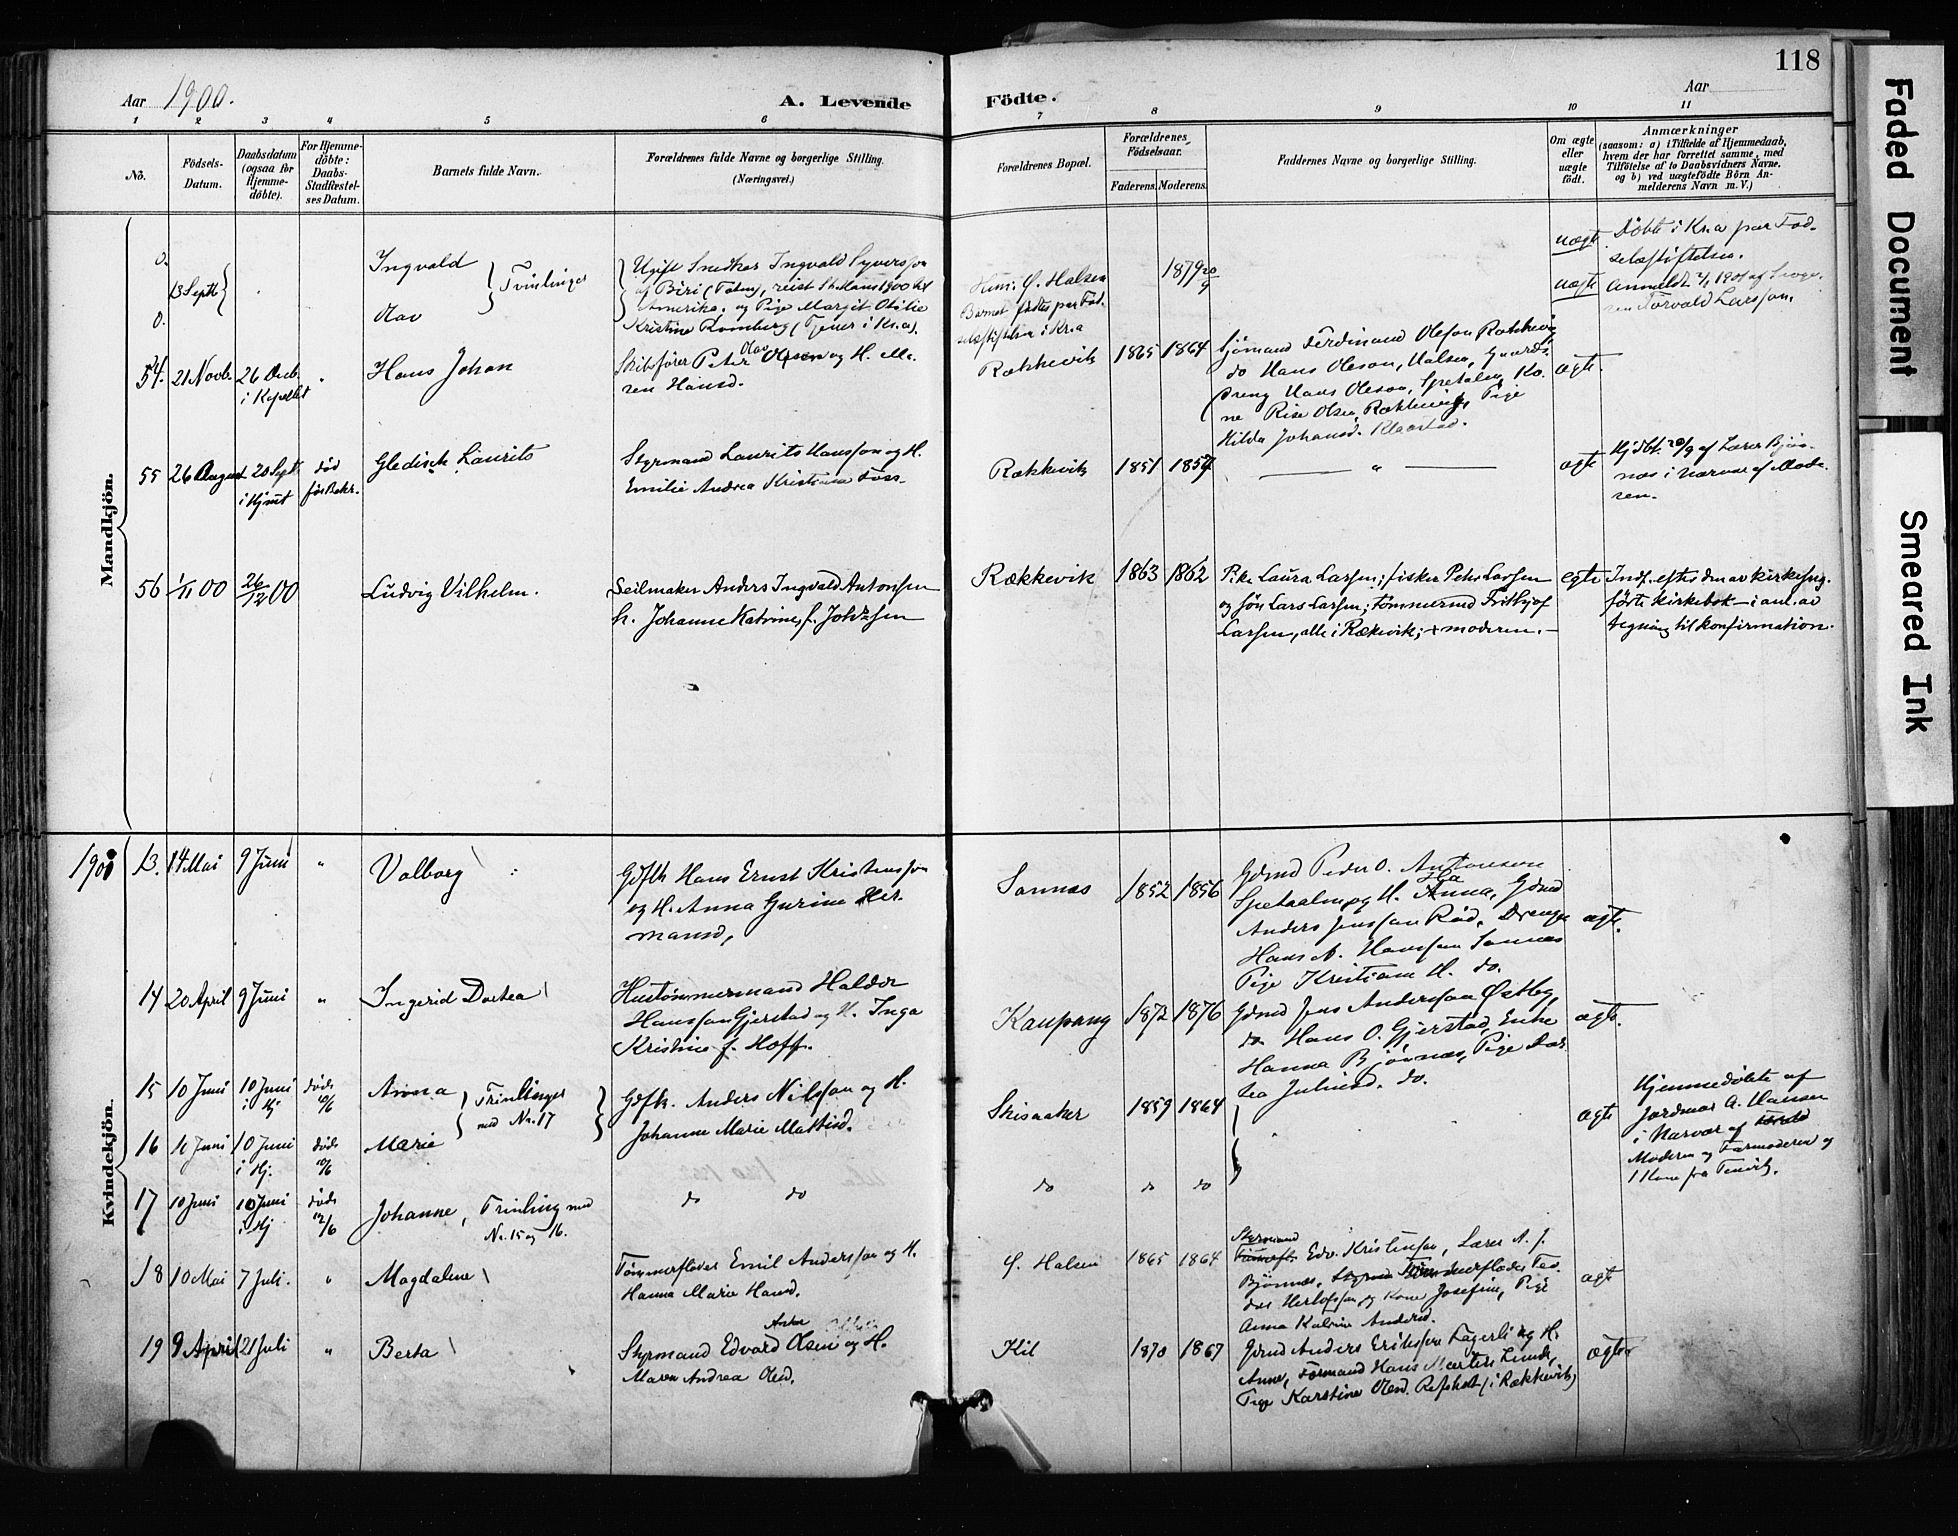 118
Aar 1900.
A. Levende
Födte.
Aar
1 2 3 4 5 6 7 8 9 10 11
Nô.
Födsels-
Datum.
Daabsdatum
(ogsaa for
Hjemme-
döbte).
For Hjemme-
döbte:
Daabs-
Stadfæstel-
ses Datum.
Barnets fulde Navn.
Forældrenes fulde Navne og borgerlige Stilling.
(Næringsvei.)
Forældrenes Bopæl.
Forældrenes
Födselsaar.
Faderens. Moderens.
Faddernes Navne og borgerlige Stilling.
Om ægte
eller
uægte
födt.
Anmærkninger
(saasom: a) i Tilfælde af Hjemmedaab,
hvem der har forrettet samme, med
Tilföielse af to Daabsvidners Navne.
og b) ved uægtefödte Börn An-
melderens Navn m. V.)
Mandkjön.
0.
13 Septb
0.
Ingvald
Olav
Tvillinger
Ugift Snedker Ingvald Syversson
af Biri (Toten), reist St. Hans 1900 til
Amerika, og Pige Margit Otilie
Kristine Romberg (Tjener i Kr.a).
Hun: Ø. Halsen
Barnet født paa Fød-
selsstiftelsen i Kr.a
1879 20/9
uægte
uægte
Döbt i Kr.a paa Fød-
selsstiftelsen.
Anmeldt 2/1 1901 af
Torvald Larsson.
54. 21 Novb. 26 Decb. "
i Kapellet
Hans Johan
Skibsfører Peter Olav Olsen og H. Ma-
ren Hansd.
Rækkevik 1865 1864
Sjømand Ferdinand Oleson Rækkevig
do Hans Oleson, Halsen, Gaards-
dreng Hans Oleson, Spetalen, Ko-
ne Rise Olsen, Rækkevig, Pige
Hilda Johansd. Klaastad.
ægte.
55 26 August 20 Sept. død
i Hjmt før Bekr.
Gledisch Laurits
Styrmand Laurits Hansson og H.
Emilie Andrea Kristiane Foss.
Rækkevik 1851 1857
— " —
ægte
Hjdbt. 20/9 af Lærer Bjøn-
nes i Nærvær af Mode-
ren.
56 1/11 00 26/12 00
Ludvig Vilhelm.
Seilmaker Anders Ingvald Antonsen
h. Johanne Katrine, f. Johnsen
Rækkevik 1863 1862
Pike Laura Larsen; fisker Peter Larsen
og Jön Lars Larsen; tömmermd Fritjof
Larsen, alle i Rækevik; + moderen. —
egte
Indf. efter den av kirkesng.
förte kirkebok — i anl. av
tegning til konfirmation.
Kvindekjön.
1901
13. 14 Mai 9 Juni "
Valborg
Gdfbr. Hans Ernst Kristensson
og H. Anna Gurine Her-
mansd,
Sannæs 1852 1856
Gdmd Peder O. Antonsen
Spetaalen og H. Anna, Gdmd
Anders Jensson Rød, Dreng
Hans A. Hansson Sannæs
Pige Kristiane H. do.
ægte.
14 20 April 9 Juni "
Ingerid Dortea
Hustömmermand Haldor
Hansson Gjerstad og H. Inga
Kristine f. Hoff.
Kaupang 1872 1876
Gdmd Jens Andersson Østby,
do Hans O. Gjerstad, Enke
Hanna Bjønnes, Pige Dor-
tea Juliusd. do.
ægte.
15 10 Juni 10 Juni døde
i Hj 10/6
Anna
Trinlinger
med No. 17
Gdfbr. Anders Nilsson og H.
Johanne Marie Mattisd.
Skisaaker 1859 1864
"
ægte
Hjemmedöbte af
Jordmor A. Hansen
i Nærvær af
Moderen og Farmoderen og
1 Kone fra Tenvik.
16 10 Juni 10 Juni døde
i Hj. 10/6
Marie
17 10 Juni 10 Juni døde
i Hj 12/6
Johanne, Trinling med
No. 15 og 16.
do do
do do do
18 10 Mai 7 Juli. "
Magdalene
Tømmerflöder Emil Andersson og H.
Hanna Marie Hansd.
Ø. Halsen 1865 1864
Styrmand
Edv. Kristensen, Lærer A. J.
Bjønnes, Tømmerflöder Teo-
dor Herlofssen og Kone Josefine, Pige
Anna Katrine Andersd.
ægte
19 9 April 21 Juli "
Berta
Styrmand Edvard Anker Olsen og H.
Maren Andrea Olesd.
Kil 1870 1867
Gdmd Anders Eriksson Fagerli og H.
Anne, Formand Hans Martin Lunde,
Pige Karstine Olesd. Refsholt (i Rækkevik)
ægte.
Faded Document
Smeared Ink